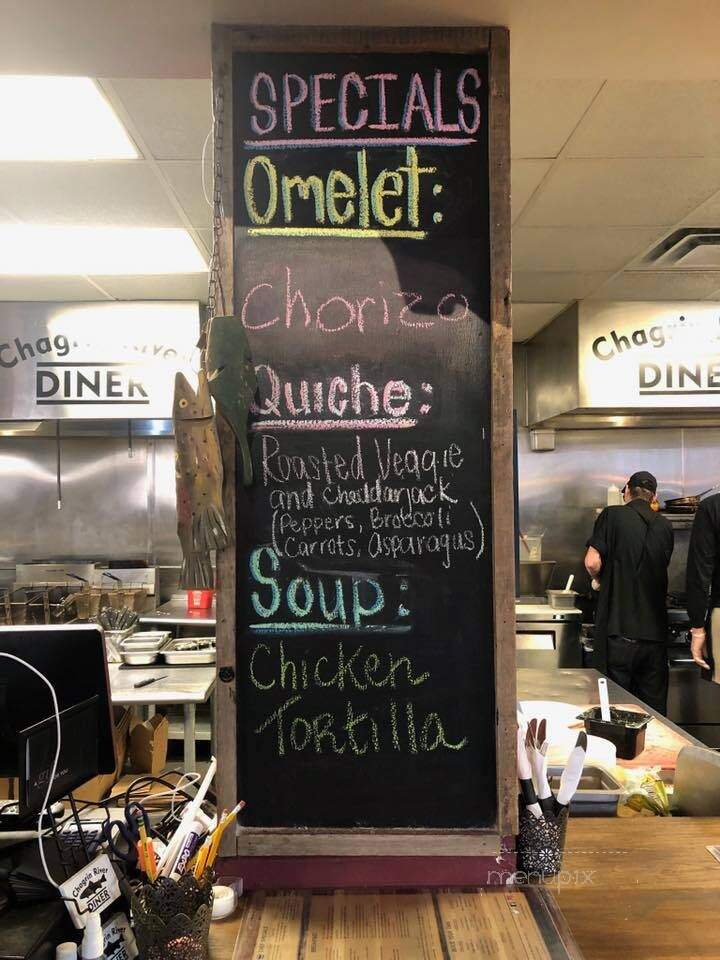 SPECIALS
Omelet:
Chorizo
Quiche:
Roasted Veggie
and Cheddarjack
(Peppers, Broccoli
Carrots, Asparagus)
Soup:
Chicken
Tortilla
DINER
Chagrin River
DINER
menupix